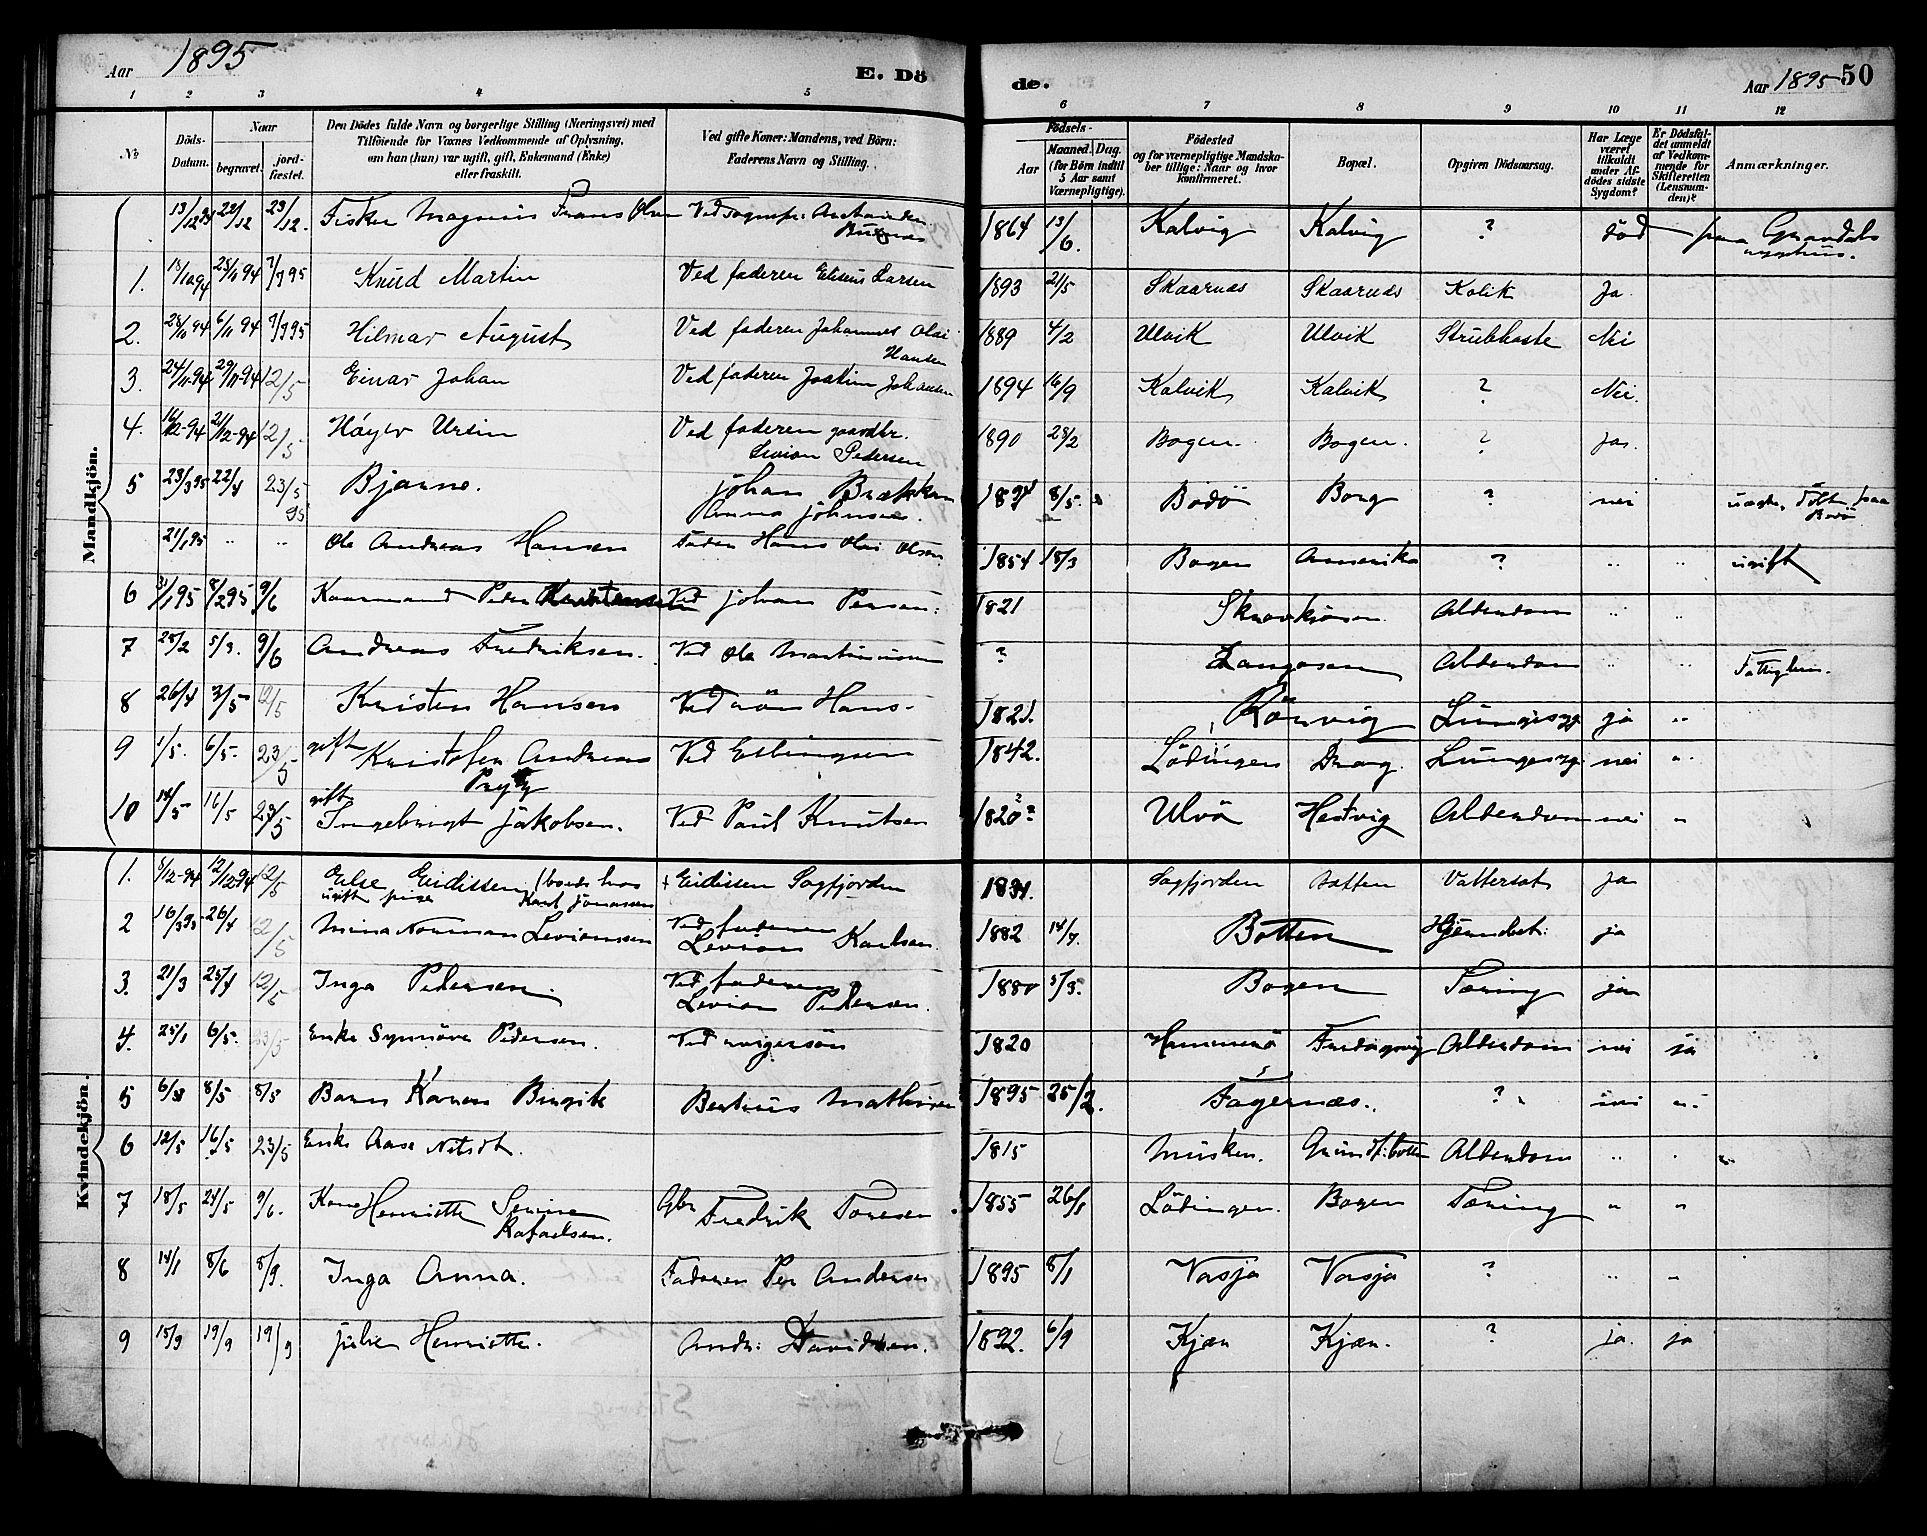 Aar 1895 E. Dö de. Aar 1895 50
1 2 3 4 5 6 7 8 9 10 11 12
No
Döds-Datum.
Naar
begravet.
jord-fæstet.
Den Dödes fulde Navn og borgerlige Stilling (Næringsvei) med
Tilföiende for Voxnes Vedkommende af Oplysning,
om han (hun) var ugift, gift, Enkemand (Enke)
eller fraskilt.
Ved gifte Koner: Mandens, ved Börn:
Faderens Navn og Stilling.
Födsels-
Aar
Maaned. Dag.
(for Börn indtil
5 Aar samt
Værnepligtige).
Födested
og for værnepligtige Mandska-
ber tillige: Naar og hvor
konfirmeret.
Bopæl.
Opgiven Dödsaarsag.
Har Læge
været
tilkaldt
under Af-
dödes sidste
Sygdom?
Er Dödsfal-
det anmeldt
af Vedkom-
mende for
Skifteretten
(Lensman-
den)?
Anmærkninger.
Mandkjön.
13/12 22/12 23/12. Fisker Magnus Frans Olsen 1864 13/6. Kalvig Kalvig ? död
1. 23/11 94 7/7 95 Knud Martin Ved faderen Eliseus Larsen 1893 21/5 Skaarnæs Skaarnæs Kolik Ja
2. 6/11 94 7/7 95 Hilmar August Ved faderen Johannes Olai Hansen 1889 4/2 Ulvik Ulvik Strubhoste Nei
3. 24/11-94 29/11-94 12/5 Einar Johan Ved faderen Joakim Johansen 1894 16/9 Kalvik Kalvik ? Nei.
4. 16/12-94 21/12-94 12/5 Höyer Ursin Ved faderen gaardbr. Levion Pedersen 1890 23/2 Bogen. Bogen. ? Ja.
5 23/3 95 22/4 23/5 95 Bjarne. Johan Brækkan Anna Johnsen. 1894 8/5. Bodö Borg ? nei
21/1 95 " " Ole Andreas Hansen Fader Hans Olai Olsen 1854 18/3 Bogen Amerika ? " " ugift
6 31/1 95 8/2 95 9/6 Kaarmand Peder Ved Johan Persen. 1821 Alderdom " "
7 28/2 5/3. 9/6 Andreas Fredriksen. Ved Ole ? Alderdom " "
8 26/4 3/5 12/5 Kristen Hansen Ved sön Hans 1821. Rörvig Lungesyg ja "
9 1/5. 6/5. 23/5 gift Kristofer Andreas Ved Ellingsen 1842. Lödingen Drag. Lungesyg. nei "
10 14/5 16/5 23/5 gift Ingebrigt Jakobsen. Ved Paul Knutsen 1820? Ulvö Hestvig Alderdom nei "
Kvindekjön.
1. 5/12-94 12/12-94 12/5 Else Eidissen (boede hos ugift pige Karl Jonassen + Eidissen Sagfjorden 1831. Sagfjorden Botten Vattersot ja
2 26/4 12/5 Mina Norman Levionsen Ved faderen Levion Karlsen. 1882 14/7. Botten ja
3. 21/3 25/4 12/5 Inga Pedersen. Ved faderen Levion Pedersen. 1880 5/3. Bogen Tæring ja
4. 25/1 6/5. 23/5 Enke Synnöve Pedersen. Ved svigersön 1820 Hammerö Alderdom nei ja
5 8/5 8/5 Barn Karen Birgit 1895 25/2. Fagernæs. ? nei "
6 12/5 16/5 23/5 Enke Aase 1815 Musken. Alderdom " "
7 18/5 24/5 9/6. Kone Henriette Serine Rafaelsen. Gbr Fredrik Toresen. 1855 26/1 Lödingen. Bogen Tæring " "
8 14/1 8/6 8/9. Inga Anna. Faderen Per Andersen 1895 8/1 Vasja Vasja ? " "
9 15/9 19/9 19/9 Julie Henriette. Andr: Davidsen. 1892. 6/9 Kjæn Kjæn. ? ja. ja